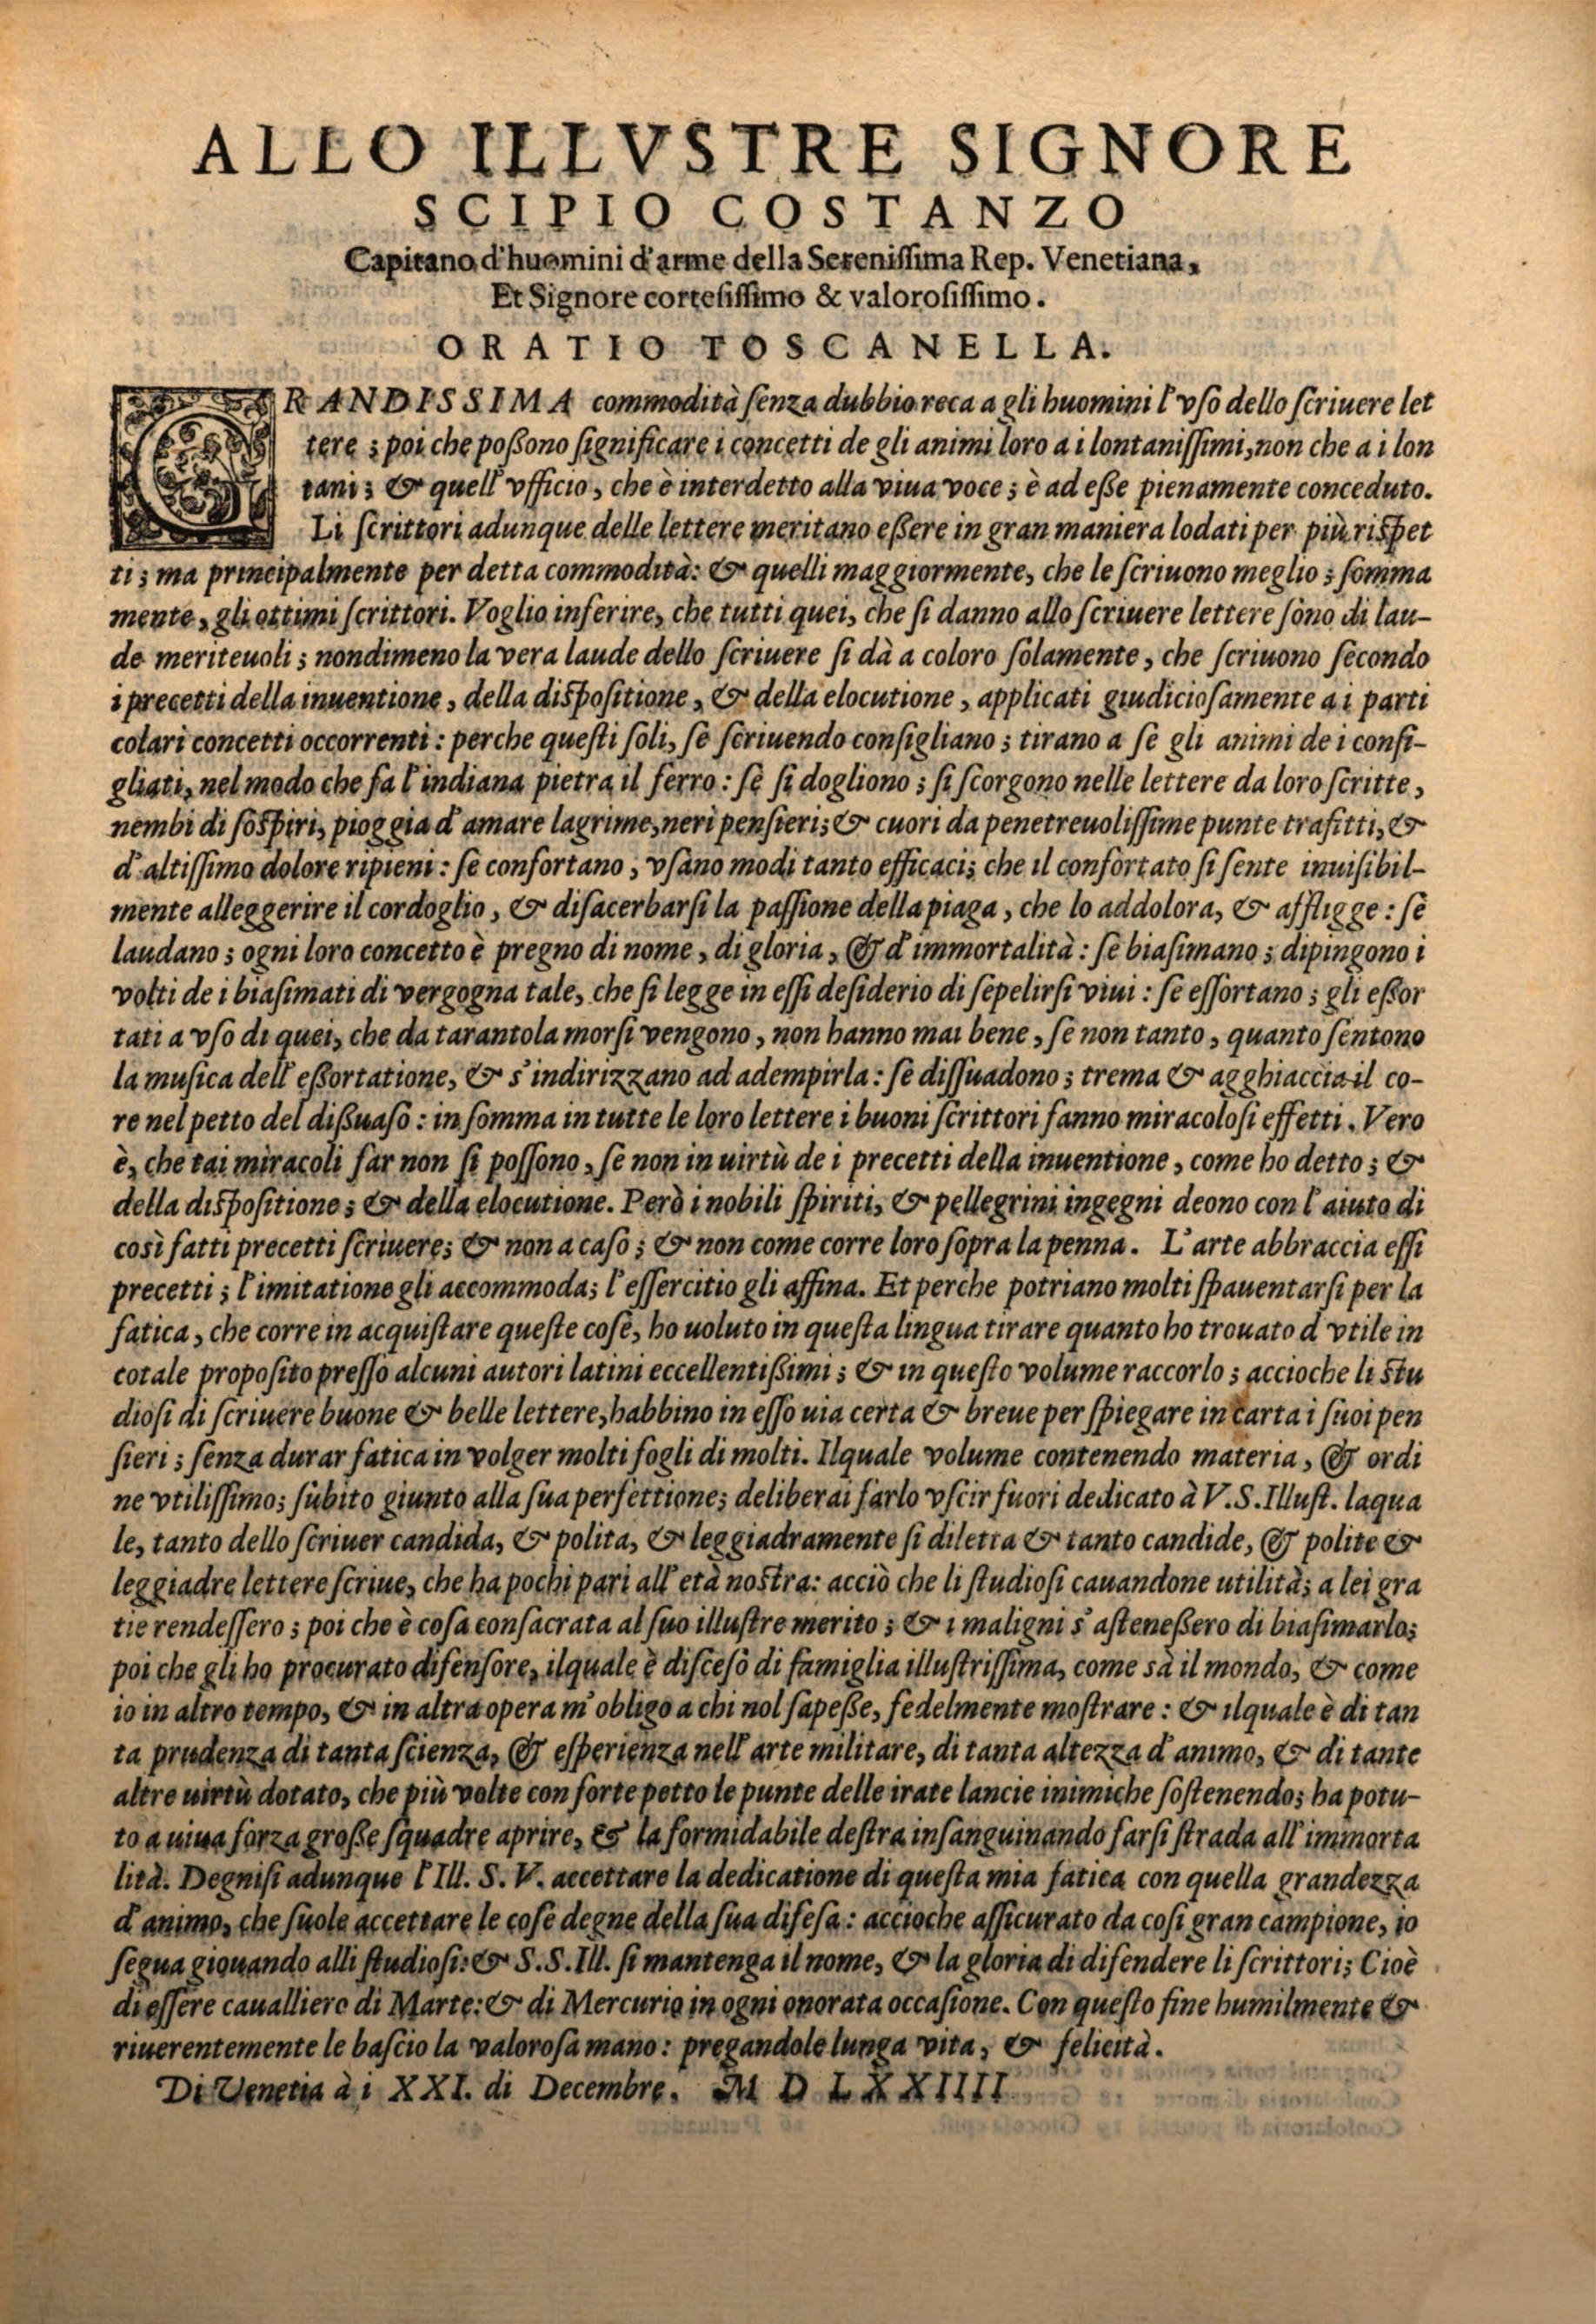 ALLO ILLVSTRE SIGNORE
SCIPIO COSTANZO
Capitano d'huomini d'arme della Sereniſſima Rep. Venetiana,
Et Signore corteſiſſimo & valoroſiſſimo.
ORATIO TOSCANELLA.
GRANDISSIMA commodità ſenza dubbio reca a gli huomini l'vſo dello ſcriuere let
tere ; poi che poßono ſignificare i concetti de gli animi loro a i lontaniſſimi, non che a i lon
tani; & quell' vfficio, che è interdetto alla viua voce ; è ad eße pienamente conceduto.
Li ſcrittori adunque delle lettere meritano eßere in gran maniera lodati per più riſpet
ti ; ma principalmente per detta commodità: & quelli maggiormente, che le ſcriuono meglio ; ſomma
mente, gli ottimi ſcrittori. Voglio inferire, che tutti quei, che ſi danno allo ſcriuere lettere ſono di lau-
de meriteuoli ; nondimeno la vera laude dello ſcriuere ſi dà a coloro ſolamente, che ſcriuono ſecondo
i precetti della inuentione, della diſpoſitione, & della elocutione, applicati giudicioſamente a i parti
colari concetti occorrenti : perche queſti ſoli, ſe ſcriuendo conſigliano ; tirano a ſe gli animi de i conſi-
gliati, nel modo che fa l'indiana pietra il ferro : ſe ſi dogliono ; ſi ſcorgono nelle lettere da loro ſcritte,
nembi di ſoſpiri, pioggia d'amare lagrime, neri penſieri; & cuori da penetreuoliſſime punte trafitti, &
d'altiſſimo dolore ripieni : ſe confortano, vſano modi tanto efficaci; che il confortato ſi ſente inuiſibil-
mente alleggerire il cordoglio, & diſacerbarſi la paſſione della piaga, che lo addolora, & affligge : ſe
laudano ; ogni loro concetto è pregno di nome, di gloria, & d'immortalità : ſe biaſimano ; dipingono i
volti de i biaſimati di vergogna tale, che ſi legge in eſſi deſiderio di ſepelirſi viui : ſe eſſortano ; gli eßor
tati a vſo di quei, che da tarantola morſi vengono, non hanno mai bene, ſe non tanto, quanto ſentono
la muſica dell' eßortatione, & s'indirizzano ad adempirla : ſe diſſuadono ; trema & agghiaccia il co-
re nel petto del dißuaſo : in ſomma in tutte le loro lettere i buoni ſcrittori fanno miracoloſi effetti. Vero
è, che tai miracoli far non ſi poſſono, ſe non in uirtù de i precetti della inuentione, come ho detto ; &
della diſpoſitione ; & della elocutione. Però i nobili ſpiriti, & pellegrini ingegni deono con l'aiuto di
così fatti precetti ſcriuere; & non a caſo ; & non come corre loro ſopra la penna. L'arte abbraccia eſſi
precetti ; l'imitatione gli accommoda; l'eſſercitio gli affina. Et perche potriano molti ſpauentarſi per la
fatica, che corre in acquiſtare queſte coſe, ho uoluto in queſta lingua tirare quanto ho trouato d vtile in
cotale propoſito preſſo alcuni autori latini eccellentißimi ; & in queſto volume raccorlo ; accioche li ſtu
dioſi di ſcriuere buone & belle lettere, habbino in eſſo uia certa & breue per ſpiegare in carta i ſuoi pen
ſieri ; ſenza durar fatica in volger molti fogli di molti. Ilquale volume contenendo materia, & ordi
ne vtiliſſimo; ſubito giunto alla ſua perfettione; deliberai farlo vſcir fuori dedicato à V.S.Illuſt. laqua
le, tanto dello ſcriuer candida, & polita, & leggiadramente ſi diletta & tanto candide, & polite &
leggiadre lettere ſcriue, che ha pochi pari all' età noſtra: acciò che li ſtudioſi cauandone utilità; a lei gra
tie rendeſſero ; poi che è coſa conſacrata al ſuo illuſtre merito ; & i maligni s'aſteneßero di biaſimarlo;
poi che gli ho procurato difenſore, ilquale è diſceſo di famiglia illuſtriſſima, come sà il mondo, & come
io in altro tempo, & in altra opera m'obligo a chi nol ſapeße, fedelmente moſtrare : & ilquale è di tan
ta prudenza di tanta ſcienza, & eſperienza nell' arte militare, di tanta altezza d'animo, & di tante
altre uirtù dotato, che più volte con forte petto le punte delle irate lancie inimiche ſoſtenendo; ha potu-
to a uiua forza große ſquadre aprire, & la formidabile deſtra inſanguinando farſi ſtrada all' immorta
lità. Degniſi adunque l'Ill. S. V. accettare la dedicatione di queſta mia fatica con quella grandezza
d'animo, che ſuole accettare le coſe degne della ſua difeſa : accioche aſſicurato da coſi gran campione, io
ſegua giouando alli ſtudioſi: & S.S.Ill. ſi mantenga il nome, & la gloria di difendere li ſcrittori; Cioè
di eſſere caualliero di Marte: & di Mercurio in ogni onorata occaſione. Con queſto fine humilmente &
riuerentemente le baſcio la valoroſa mano : pregandole lunga vita, & felicità.
Di Venetia à i XXI. di Decembre. M D LXXIIII